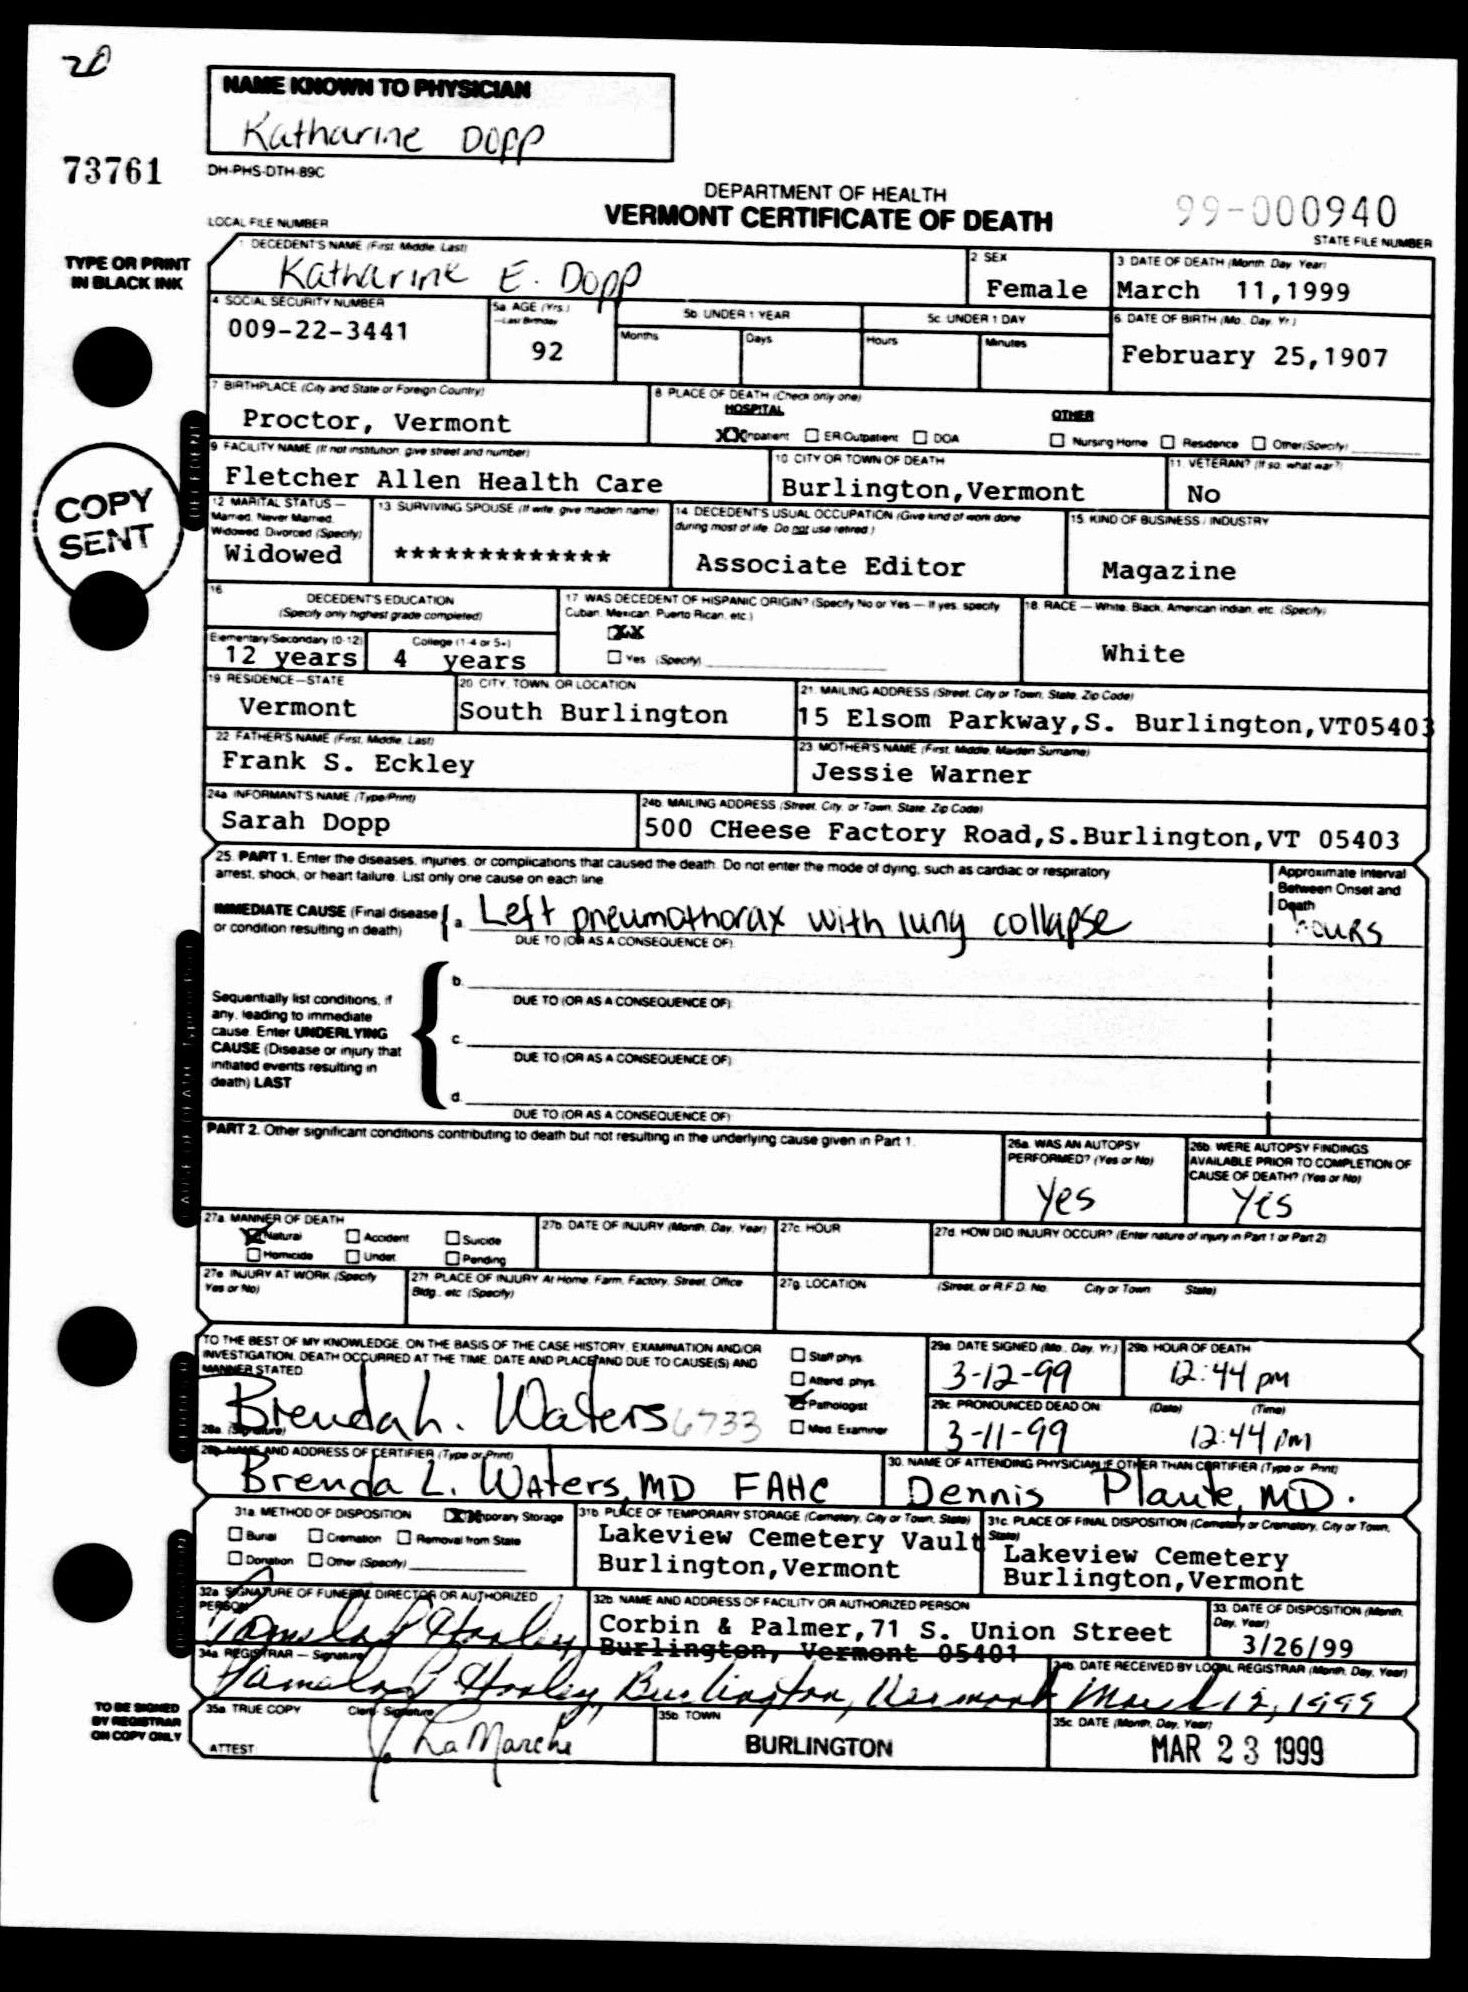 20
NAME KNOWN TO PHYSICIAN
Katharine Dopp
73761
DH-PHS-DTH-89C
DEPARTMENT OF HEALTH
VERMONT CERTIFICATE OF DEATH
99-000940
LOCAL FILE NUMBER
STATE FILE NUMBER
TYPE OR PRINT
IN BLACK INK
1 DECEDENT'S NAME (First, Middle, Last)
Katharine E. Dopp
2 SEX
Female
3 DATE OF DEATH (Month, Day, Year)
March 11,1999
4 SOCIAL SECURITY NUMBER
009-22-3441
5a AGE (Yrs.)
—Last Birthday
92
5b UNDER 1 YEAR
Months
Days
5c UNDER 1 DAY
Hours
Minutes
6. DATE OF BIRTH (Mo., Day, Yr.)
February 25,1907
7 BIRTHPLACE (City and State or Foreign Country)
Proctor, Vermont
8 PLACE OF DEATH (Check only one)
HOSPITAL
XX Inpatient ER/Outpatient DOA
OTHER
Nursing Home Residence Other (Specify)
9 FACILITY NAME (If not institution, give street and number)
Fletcher Allen Health Care
10 CITY OR TOWN OF DEATH
Burlington,Vermont
11. VETERAN? (If so, what war?)
No
DECEDENT
COPY
SENT
12 MARITAL STATUS —
Married, Never Married,
Widowed, Divorced (Specify)
Widowed
13 SURVIVING SPOUSE (If wife, give maiden name)
*************
14 DECEDENT'S USUAL OCCUPATION (Give kind of work done
during most of life. Do not use retired.)
Associate Editor
15. KIND OF BUSINESS / INDUSTRY
Magazine
16
DECEDENT'S EDUCATION
(Specify only highest grade completed)
Elementary/Secondary (0-12)
12 years
College (1-4 or 5+)
4 years
17 WAS DECEDENT OF HISPANIC ORIGIN? (Specify No or Yes — If yes, specify
Cuban, Mexican, Puerto Rican, etc.)
XX
Yes (Specify)
18. RACE — White, Black, American Indian, etc. (Specify)
White
19 RESIDENCE—STATE
Vermont
20 CITY, TOWN, OR LOCATION
South Burlington
21. MAILING ADDRESS (Street, City or Town, State, Zip Code)
15 Elsom Parkway,S. Burlington,VT05403
22 FATHER'S NAME (First, Middle, Last)
Frank S. Eckley
23 MOTHER'S NAME (First, Middle, Maiden Surname)
Jessie Warner
24a INFORMANT'S NAME (Type/Print)
Sarah Dopp
24b. MAILING ADDRESS (Street, City, or Town, State, Zip Code)
500 CHeese Factory Road,S.Burlington,VT 05403
25. PART 1. Enter the diseases, injuries, or complications that caused the death. Do not enter the mode of dying, such as cardiac or respiratory
arrest, shock, or heart failure. List only one cause on each line
Approximate Interval
Between Onset and
Death
IMMEDIATE CAUSE (Final disease
or condition resulting in death)
a. Left pneumothorax with lung collapse
hours
DUE TO (OR AS A CONSEQUENCE OF):
b.
DUE TO (OR AS A CONSEQUENCE OF):
Sequentially list conditions, if
any, leading to immediate
cause. Enter UNDERLYING
CAUSE (Disease or injury that
initiated events resulting in
death) LAST
c.
DUE TO (OR AS A CONSEQUENCE OF):
d.
DUE TO (OR AS A CONSEQUENCE OF):
CAUSE OF DEATH Type or Print
PART 2. Other significant conditions contributing to death but not resulting in the underlying cause given in Part 1.
26a. WAS AN AUTOPSY
PERFORMED? (Yes or No)
Yes
26b. WERE AUTOPSY FINDINGS
AVAILABLE PRIOR TO COMPLETION OF
CAUSE OF DEATH? (Yes or No)
Yes
27a. MANNER OF DEATH
Natural Accident Suicide
Homicide Undet. Pending
27b. DATE OF INJURY (Month, Day, Year)
27c. HOUR
27d. HOW DID INJURY OCCUR? (Enter nature of injury in Part 1 or Part 2)
27e. INJURY AT WORK (Specify
Yes or No)
27f. PLACE OF INJURY At Home, Farm, Factory, Street, Office
Bldg., etc. (Specify)
27g. LOCATION (Street, or R.F.D. No. City or Town State)
TO THE BEST OF MY KNOWLEDGE, ON THE BASIS OF THE CASE HISTORY, EXAMINATION AND/OR
INVESTIGATION, DEATH OCCURRED AT THE TIME, DATE AND PLACE AND DUE TO CAUSE(S) AND
MANNER STATED
Brenda L. Waters 6733
28a. (Signature)
Staff phys.
Attend. phys.
Pathologist
Med. Examiner
29a. DATE SIGNED (Mo., Day, Yr.)
3-12-99
29b. HOUR OF DEATH
12:44 pm
29c. PRONOUNCED DEAD ON: (Date) (Time)
3-11-99 12:44 pm
28b. NAME AND ADDRESS OF CERTIFIER (Type or Print)
Brenda L. Waters, MD FAHC
30. NAME OF ATTENDING PHYSICIAN IF OTHER THAN CERTIFIER (Type or Print)
Dennis Plante, MD.
31a. METHOD OF DISPOSITION
XX Temporary Storage
Burial Cremation Removal from State
Donation Other (Specify)
31b PLACE OF TEMPORARY STORAGE (Cemetery, City or Town, State)
Lakeview Cemetery Vault
Burlington,Vermont
31c. PLACE OF FINAL DISPOSITION (Cemetery or Crematory, City or Town,
State)
Lakeview Cemetery
Burlington,Vermont
32a. SIGNATURE OF FUNERAL DIRECTOR OR AUTHORIZED
PERSON
32b. NAME AND ADDRESS OF FACILITY OR AUTHORIZED PERSON
Corbin & Palmer,71 S. Union Street
Burlington, Vermont 05401
33. DATE OF DISPOSITION (Month,
Day, Year)
3/26/99
34a. REGISTRAR — Signature
Burlington, Vermont
34b. DATE RECEIVED BY LOCAL REGISTRAR (Month, Day, Year)
March 12, 1999
TO BE SIGNED
BY REGISTRAR
ON COPY ONLY
35a. TRUE COPY Clerk Signature
ATTEST:
J. LaMarche
35b. TOWN
BURLINGTON
35c. DATE (Month, Day, Year)
MAR 23 1999